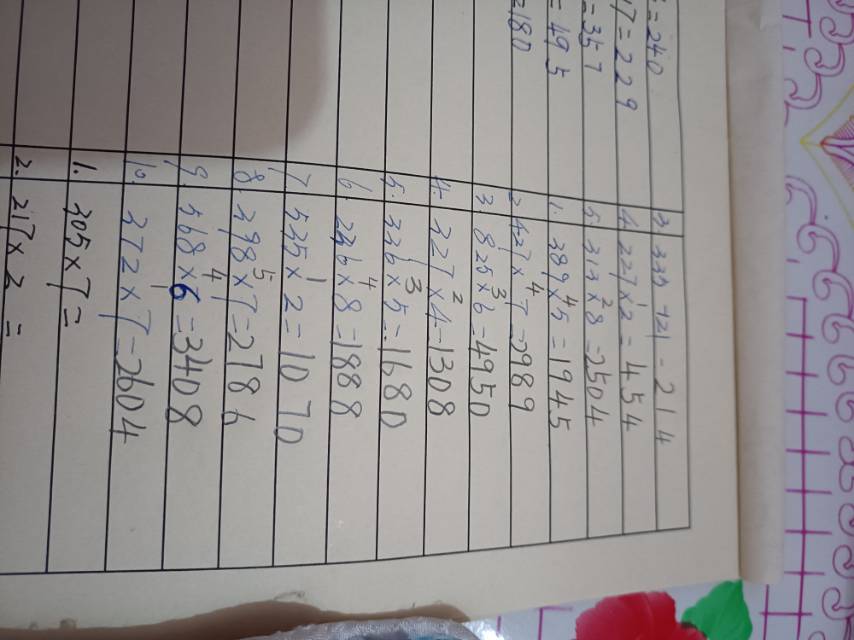 =240
17=229
=357
=495
=180
3.
4. 227×2=454
5. 313×8=2504
1. 389×5=1945
2. 427×7=2989
3. 825×6=4950
4. 327×4=1308
5. 336×5=1680
6. 236×8=1888
7. 535×2=1070
8. 398×7=2786
9. 568×6=3408
10. 372×7=2604
1. 305×7=
2. 217×3=